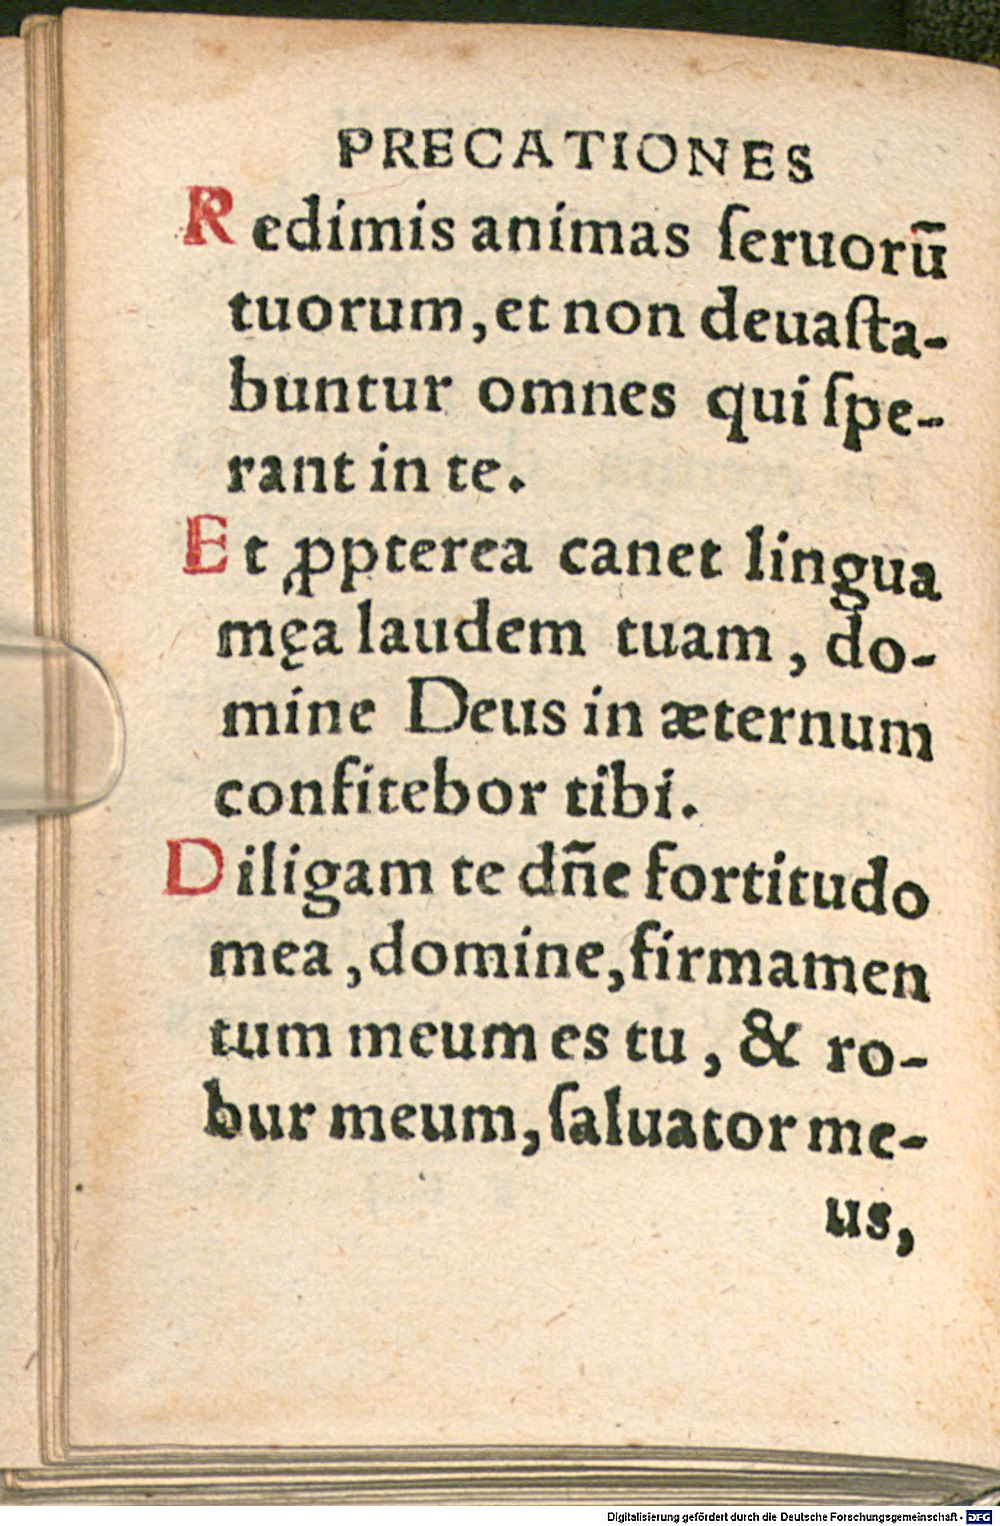 PRECATIONES
Redimis animas ſeruorū
tuorum, et non deuaſta-
buntur omnes qui ſpe-
rant in te.
Et ꝓpterea canet lingua
męa laudem tuam, do-
mine Deus in æternum
confitebor tibi.
Diligam te dñe fortitudo
mea, domine, firmamen
tum meum es tu, & ro-
bur meum, ſaluator me-
us,
Digitalisierung gefördert durch die Deutsche Forschungsgemeinschaft - DFG